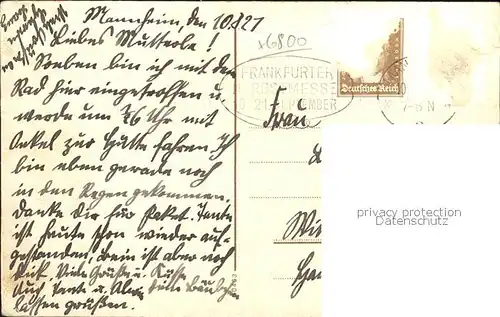 Mannheim, den 10.8.27
Liebes Mutterle!
Soeben bin ich mit dem
Rad hier eingetroffen u.
werde um 76 Uhr mit
Onkel zur Hütte fahren. Ich
bin eben gerade noch
in den Regen gekommen,
danke Dir für Paket. Tante
ist heute schon wieder auf-
gestanden, Bein ist aber noch
dick. Viele Grüße u. Küsse
auch Tante u.
lassen grüßen.
x6800
FRANKFURTER
MESSE
21. SEPTEMBER
Deutsches Reich
7-8 N
Frau
privacy protection
Datenschutz